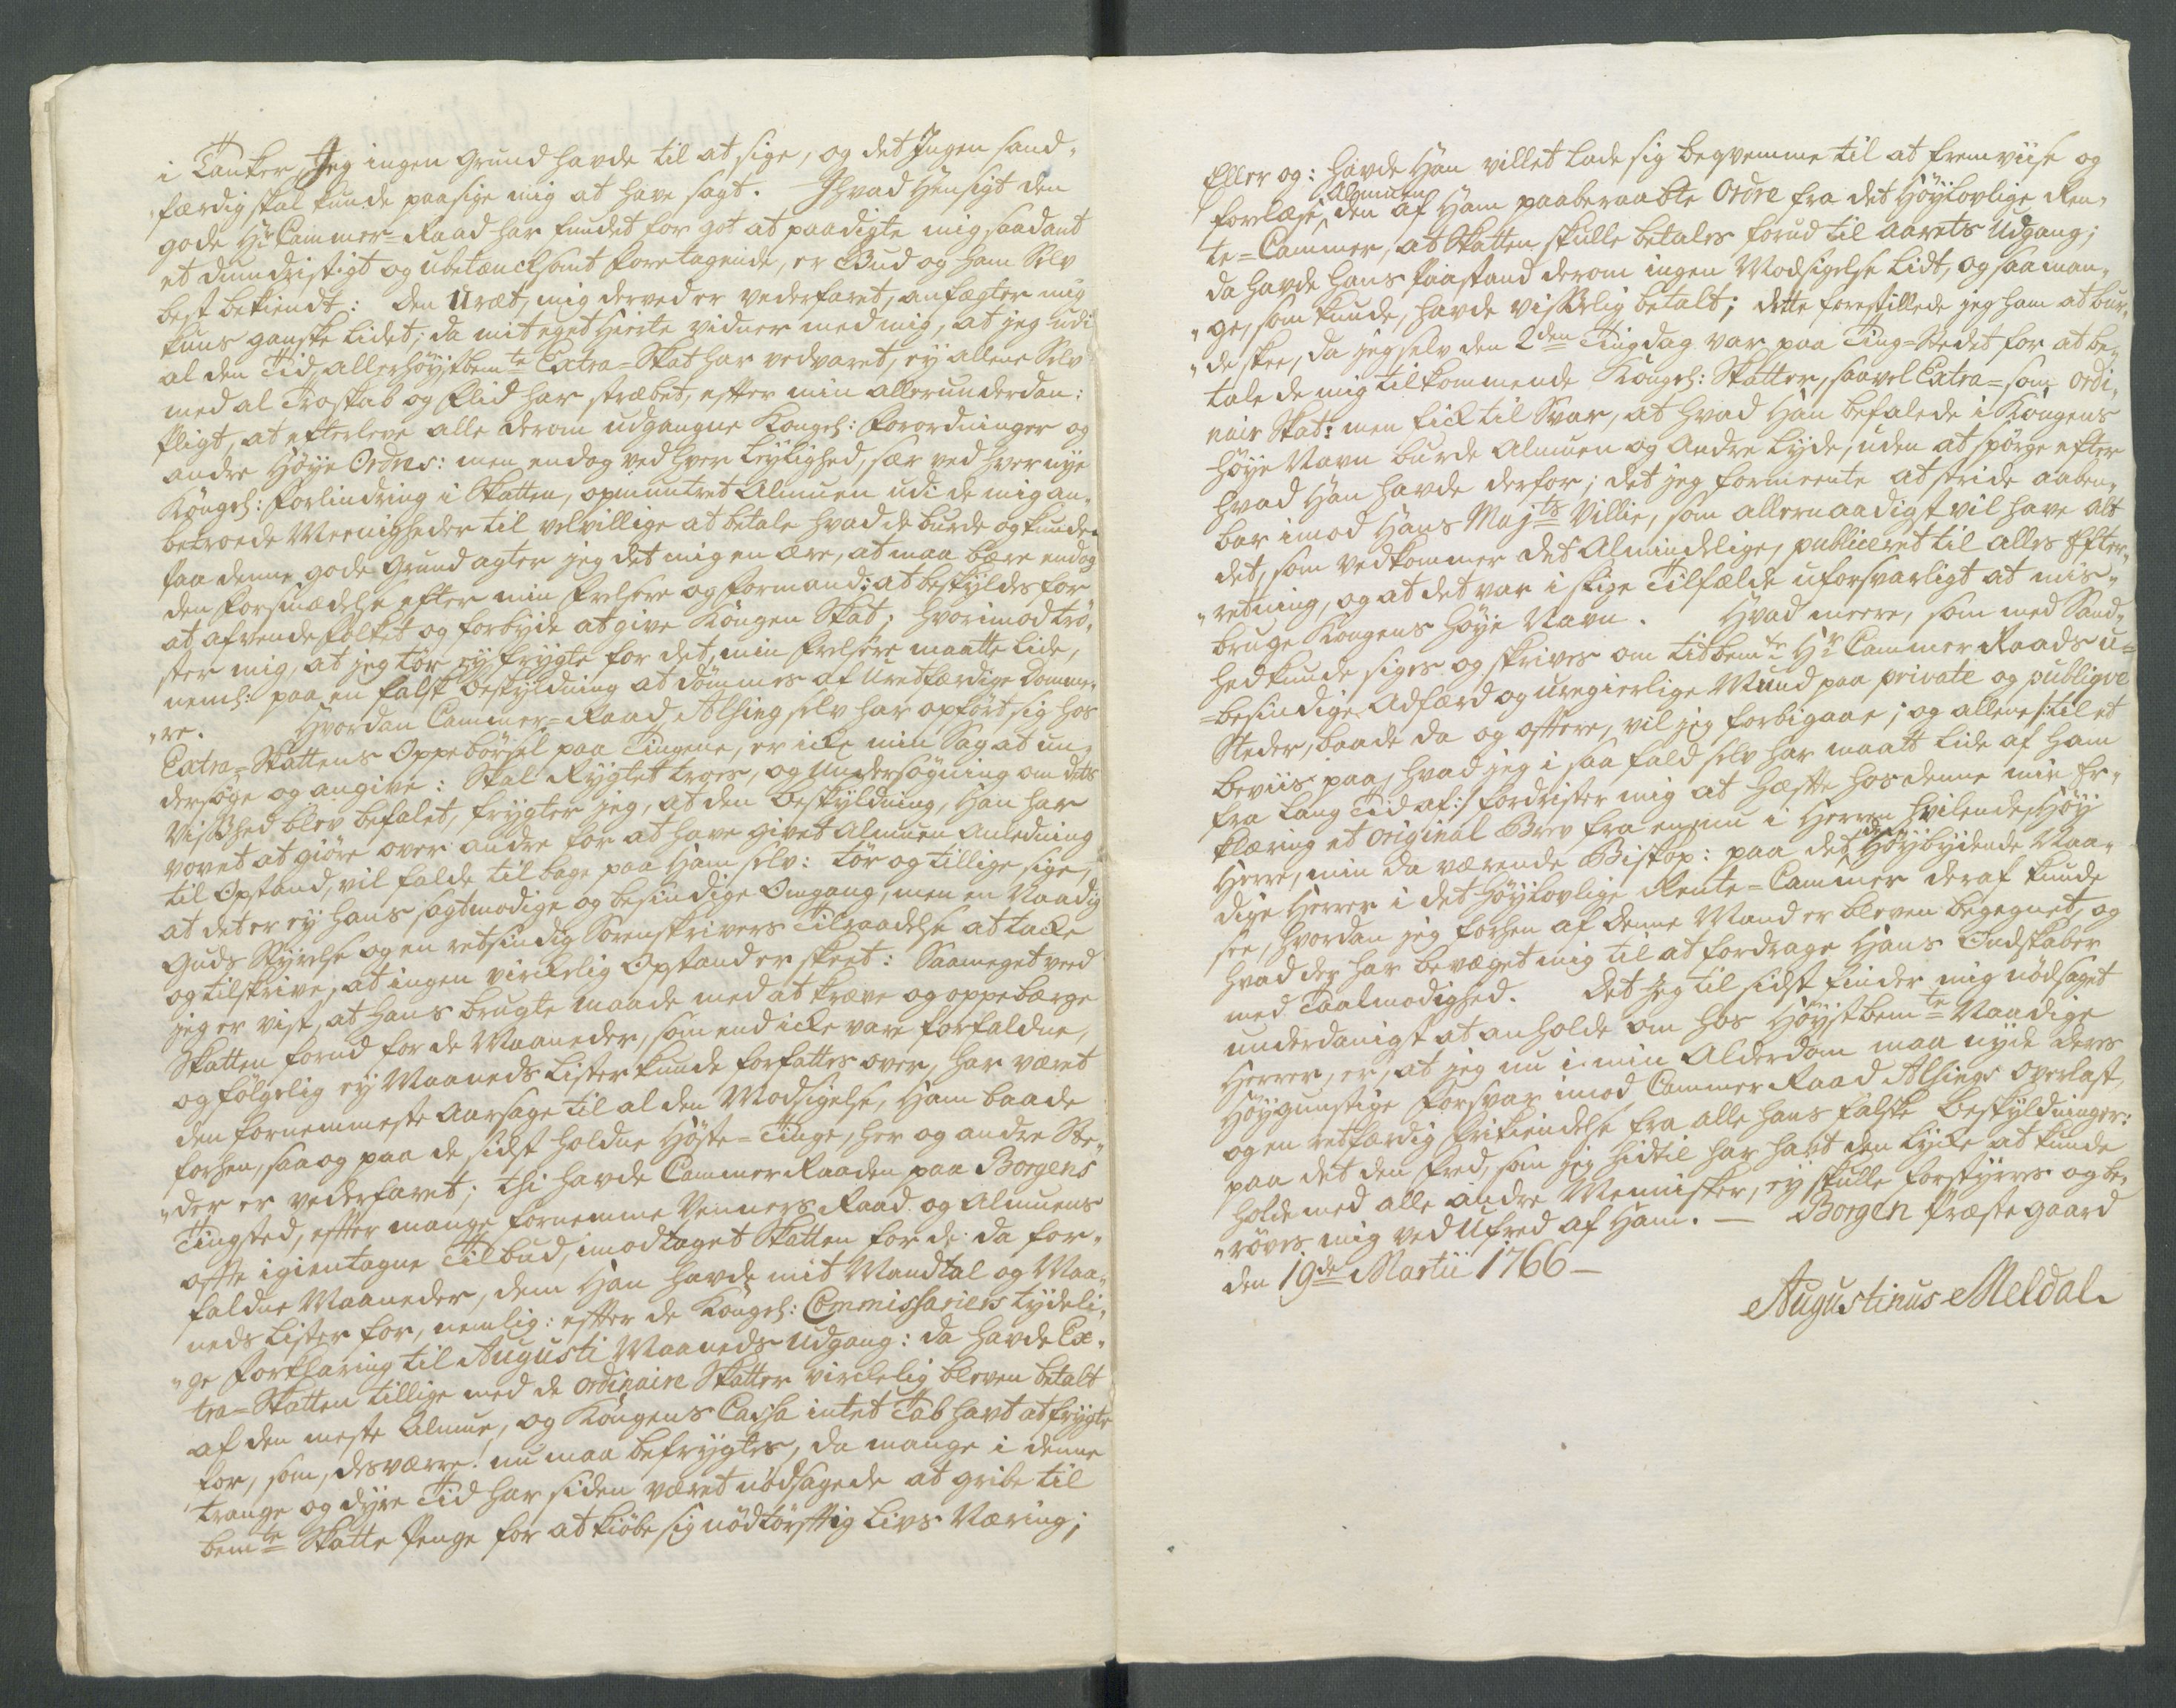 i Tanker, Jeg ingen Grund havde til at sige, og det Ingen sand-
„færdig skal kunde paasige mig at have sagt. I hvad Hensigt den
gode Hr Cammer=Raad har fundet for got at paadigte mig saadant
et dumdristigt og ubetæncksomt Foretagende, er Gud og ham Selv
best bekiendt: den Uræt, mig derved er vederfaret, anfægter mig
kuns ganske lidet; da mit eget Hierte vidner med mig, at jeg udi
al den Tid, allerhöystbemte Extra=Skat har vedvaret, ey allene Selv
med al Troskab og Flid har stræbet, efter min allerunderdan:
Pligt, at efterleve alle derom udgangne Kongel: Forordninger og
andre Höye Ordres: men endog ved hver Leylighed, sær ved hver nye
Kongel: Forlindring i Skatten, opmuntret Almuen udi de mig an-
betroede Meenigheder til velvillige at betale hvad de burde og kunde.
Paa denne gode Grund agter jeg det mig en ære, at maa bære endog
den Forsmædelse efter min Frelsere og Formand: at beskyldes for
at afvende Folket og forbyde at give Kongen Skat; hvorimod trö-
ster mig, at jeg tör ey frygte for det, min Frelsere maatte lide,
neml: paa en falsk Beskyldning at dömmes af Uretfærdige Domme-
„re. Hvordan Cammer=Raad Alsing selv har opfört sig hos
Extra=Skattens Oppebörsel paa Tingene, er icke min Sag at un-
dersöge og angive: Skal Rygtet troes, og Undersögning om dets
Visshed blev befalet, frygter jeg, at den Beskyldning, Han har
vovet at giöre over andre for at have givet Almuen Anledning
til Opstand, vil falde tilbage paa Ham selv: tör og tillige sige,
at det er ey Hans sagtmodige og besindige Omgang, men en Naadig
Guds Styrelse og en retsindig Sorenskrivers Tilraadelse at tacke
og tilskrive, at ingen virckelig Opstand er skeet: Saameget veed
jeg er vist, at Hans brugte maade med at kræve og oppebærge
Skatten forud for de Maaneder, som end icke vare forfaldne,
og fölgelig ey Maaneds Lister kunde forfattes over, har været
den fornemmeste Aarsage til al den Modsigelse, Ham baade
forhen, saa og paa de sidst holdne Höste=Tinge, her og andre Ste-
„der er vederfaret; thi havde Cammer Raaden paa Borgens
Tingsted, efter mange fornemme Venners Raad og Almuens
ofte igientagne Tilbud, imodtaget Skatten for de da for-
faldne Maaneder, dem Han havde mit Mandtal og Maa-
neds Lister for, nemlig: efter de Kongel: Commissariers tydeli-
„ge Forklaring til Augusti Maaneds Udgang: da havde Ex-
tra=Skatten tillige med de ordinaire Skatter virckelig bleven betalt
af den meste Almue, og Kongens Cassa intet Tab havt at frygte
for, som, desværre! nu maa befrygtes, da mange i denne
trange og dyre Tid har siden været nödsagede at gribe til
bemte Skatte Penge for at kiöbe sig nödtörftig Livs Næring;
Eller og: havde Han villet lade sig beqvemme til at fremviise og
forelæse Almuen den af Ham paaberaabte Ordre fra det Höylovlige Ren-
te=Cammer, at Skatten skulle betales forud til Aarets Udgang;
da havde Hans Paastand derom ingen Modsigelse lidt, og saa man-
„ge, som kunde, havde visselig betalt; dette forestillede jeg ham at bur-
„de skee, da jeg selv den 2den Tingdag var paa Ting=Stedet for at be-
tale de mig tilkommende Kongel: Skatter, saavel Extra= som ordi-
nair Skat: men fick til Svar, at hvad Han befalede i Kongens
Höye Navn burde Almuen og Andre lyde, uden at spörge efter
hvad Han havde derfor; det jeg formeente at stride aaben-
bar imod Hans Majts Villie, som allernaadigst vil have alt
det, som vedkommer det Almindelige, publiceret til alles Efter-
„retning, og at det var i slige Tilfælde uforsvarligt at mis-
bruge Kongens Höye Navn. Hvad meere, som med Sand-
hed kunde siges og skrives om titbemte Hr Cammer Raads u=
=besindige Adfærd og uregierlige Mund paa private og publiqve
Steder, baade da og oftere, vil jeg forbigaae; og allene /:til et
Beviis paa, hvad jeg i saa fald selv har maatt lide af Ham
fra lang Tid af:/ fordrister mig at hæfte hos denne min Er-
klæring et original Brev fra en nu i Herren hvilende Höy
Herre, min da værende Biskop: paa det de Höybydende Naa-
dige Herrer i det Höylovlige Rente=Cammer deraf kunde
see, hvordan jeg forhen af denne Mand er bleven begegnet, og
hvad der har bevæget mig til at fordrage Hans Ondskaber
med Taalmodighed. Det jeg til sidst finder mig nödsaget
underdanigst at anholde om hos Höystbemte Naadige
Herrer, er, at jeg nu i min Alderdom maa nyde Deres
Höygunstige Forsvar imod Cammer Raad Alsings Overlast,
og en retfærdig Frikiendelse fra alle hans falske Beskyldninger:
paa det den Fred, som jeg hidtil har havt den Lycke at kunde
holde med alle andre Mennisker, ey skulle forstyrres og be-
„röves mig ved Ufred af Ham. — Borgen Præste gaard
den 19de Martii 1766 —
Augustinus Meldal.